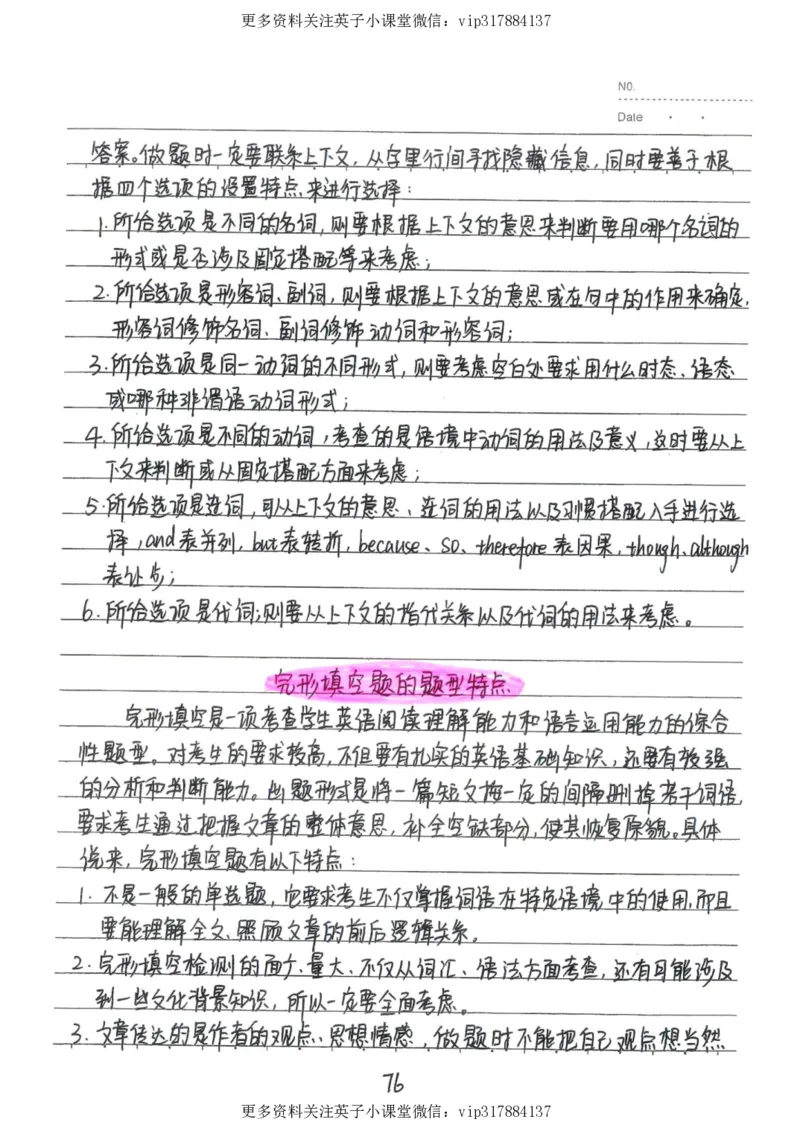 更多资料关注英子小课堂微信：vip317884137
NO.
Date
答案。做题时一定要联系上下文，从字里行间寻找隐藏信息，同时要善于根
据四个选项的设置特点来进行选择：
1.所给选项是不同的名词，则要根据上下文的意思来判断要用哪个名词的
形式或是否涉及固定搭配等来考虑；
2.所给选项是形容词、副词，则要根据上下文的意思或在句中的作用来确定，
形容词修饰名词、副词修饰动词和形容词；
3.所给选项是同一动词的不同形式，则要考虑空白处要求用什么时态、语态
或哪种非谓语动词形式；
4.所给选项是不同的动词，考查的是语境中动词的用法及意义，这时要从上
下文来判断或从固定搭配方面来考虑；
5.所给选项是连词，可从上下文的意思、连词的用法以及习惯搭配入手进行选
择，and表并列，but表转折，because、so、therefore表因果，though、although
表让步；
6.所给选项是代词；则要从上下文的指代关系以及代词的用法来考虑。
完形填空题的题型特点
完形填空是一项考查学生英语阅读理解能力和语言运用能力的综合
性题型。对考生的要求较高，不但要有扎实的英语基础知识，还要有较强
的分析和判断能力。出题形式是将一篇短文按一定的间隔删掉若干词语，
要求考生通过把握文章的整体意思，补全空缺部分，使其恢复原貌。具体
说来，完形填空题有以下特点：
1.不是一般的单选题，它要求考生不仅掌握词语在特定语境中的使用，而且
要能理解全文、照顾文章的前后逻辑关系。
2.完形填空检测的面广、量大、不仅从词汇、语法方面考查，还有可能涉及
到一些文化背景知识，所以一定要全面考虑。
3.文章传达的是作者的观点、思想情感，做题时不能把自己观点想当然
76
更多资料关注英子小课堂微信：vip317884137